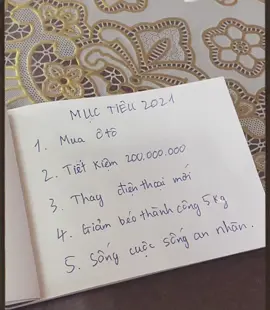 MỤC TIÊU 2021
1. Mua ôtô
2. Tiết kiệm 200.000.000
3. Thay điện thoại mới
4. Giảm béo thành công 5kg
5. Sống cuộc sống an nhàn.